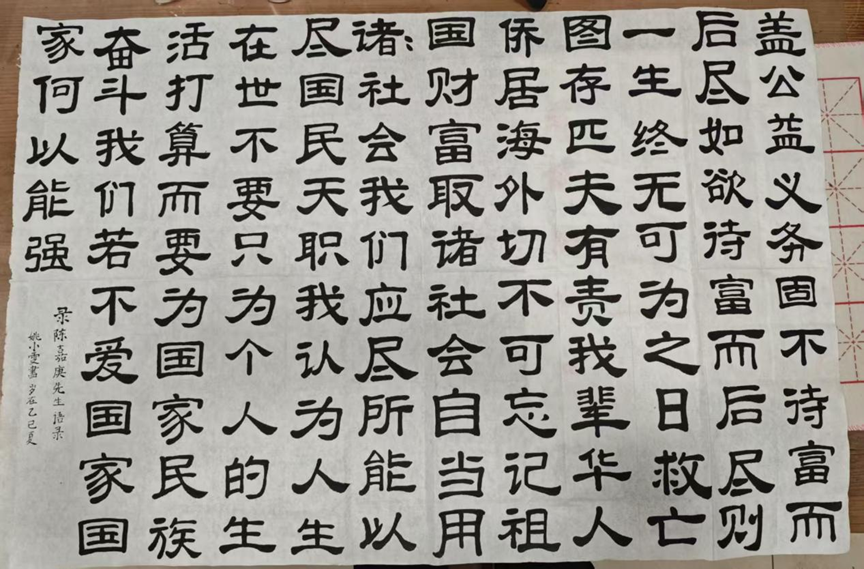 盖公益义务固不待富而
后尽如欲待富而后尽则
一生终无可为之日救亡
图存匹夫有责我辈华人
侨居海外切不可忘记祖
国财富取诸社会自当用
诸社会我们应尽所能以
尽国民天职我认为人生
在世不要只为个人的生
活打算而要为国家民族
奋斗我们若不爱国家国
家何以能强
录陈嘉庚先生语录
姚小雯书岁在乙巳夏